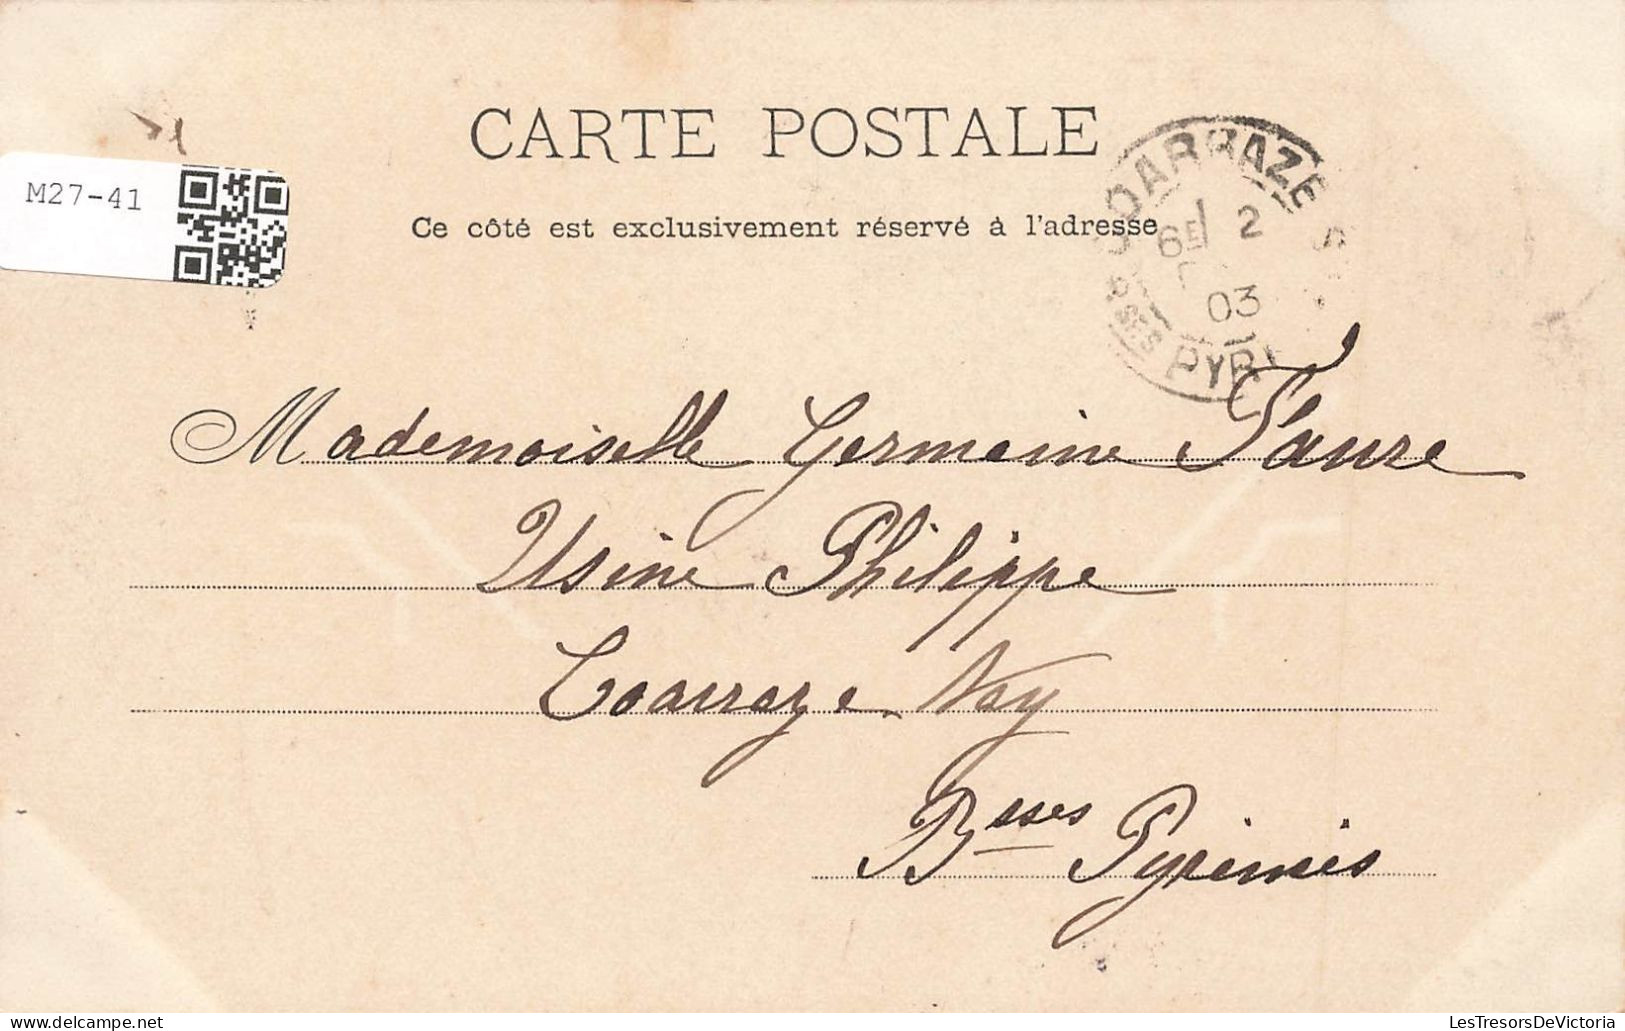 CARTE POSTALE
M27-41
Ce côté est exclusivement réservé à l'adresse
COARRAZE
6E 2
03
BSES PYR
Mademoiselle Germaine Faure
Usine Philippe
Coarraze Nay
Bsses Pyrénnés
LesTresorsDeVictoria